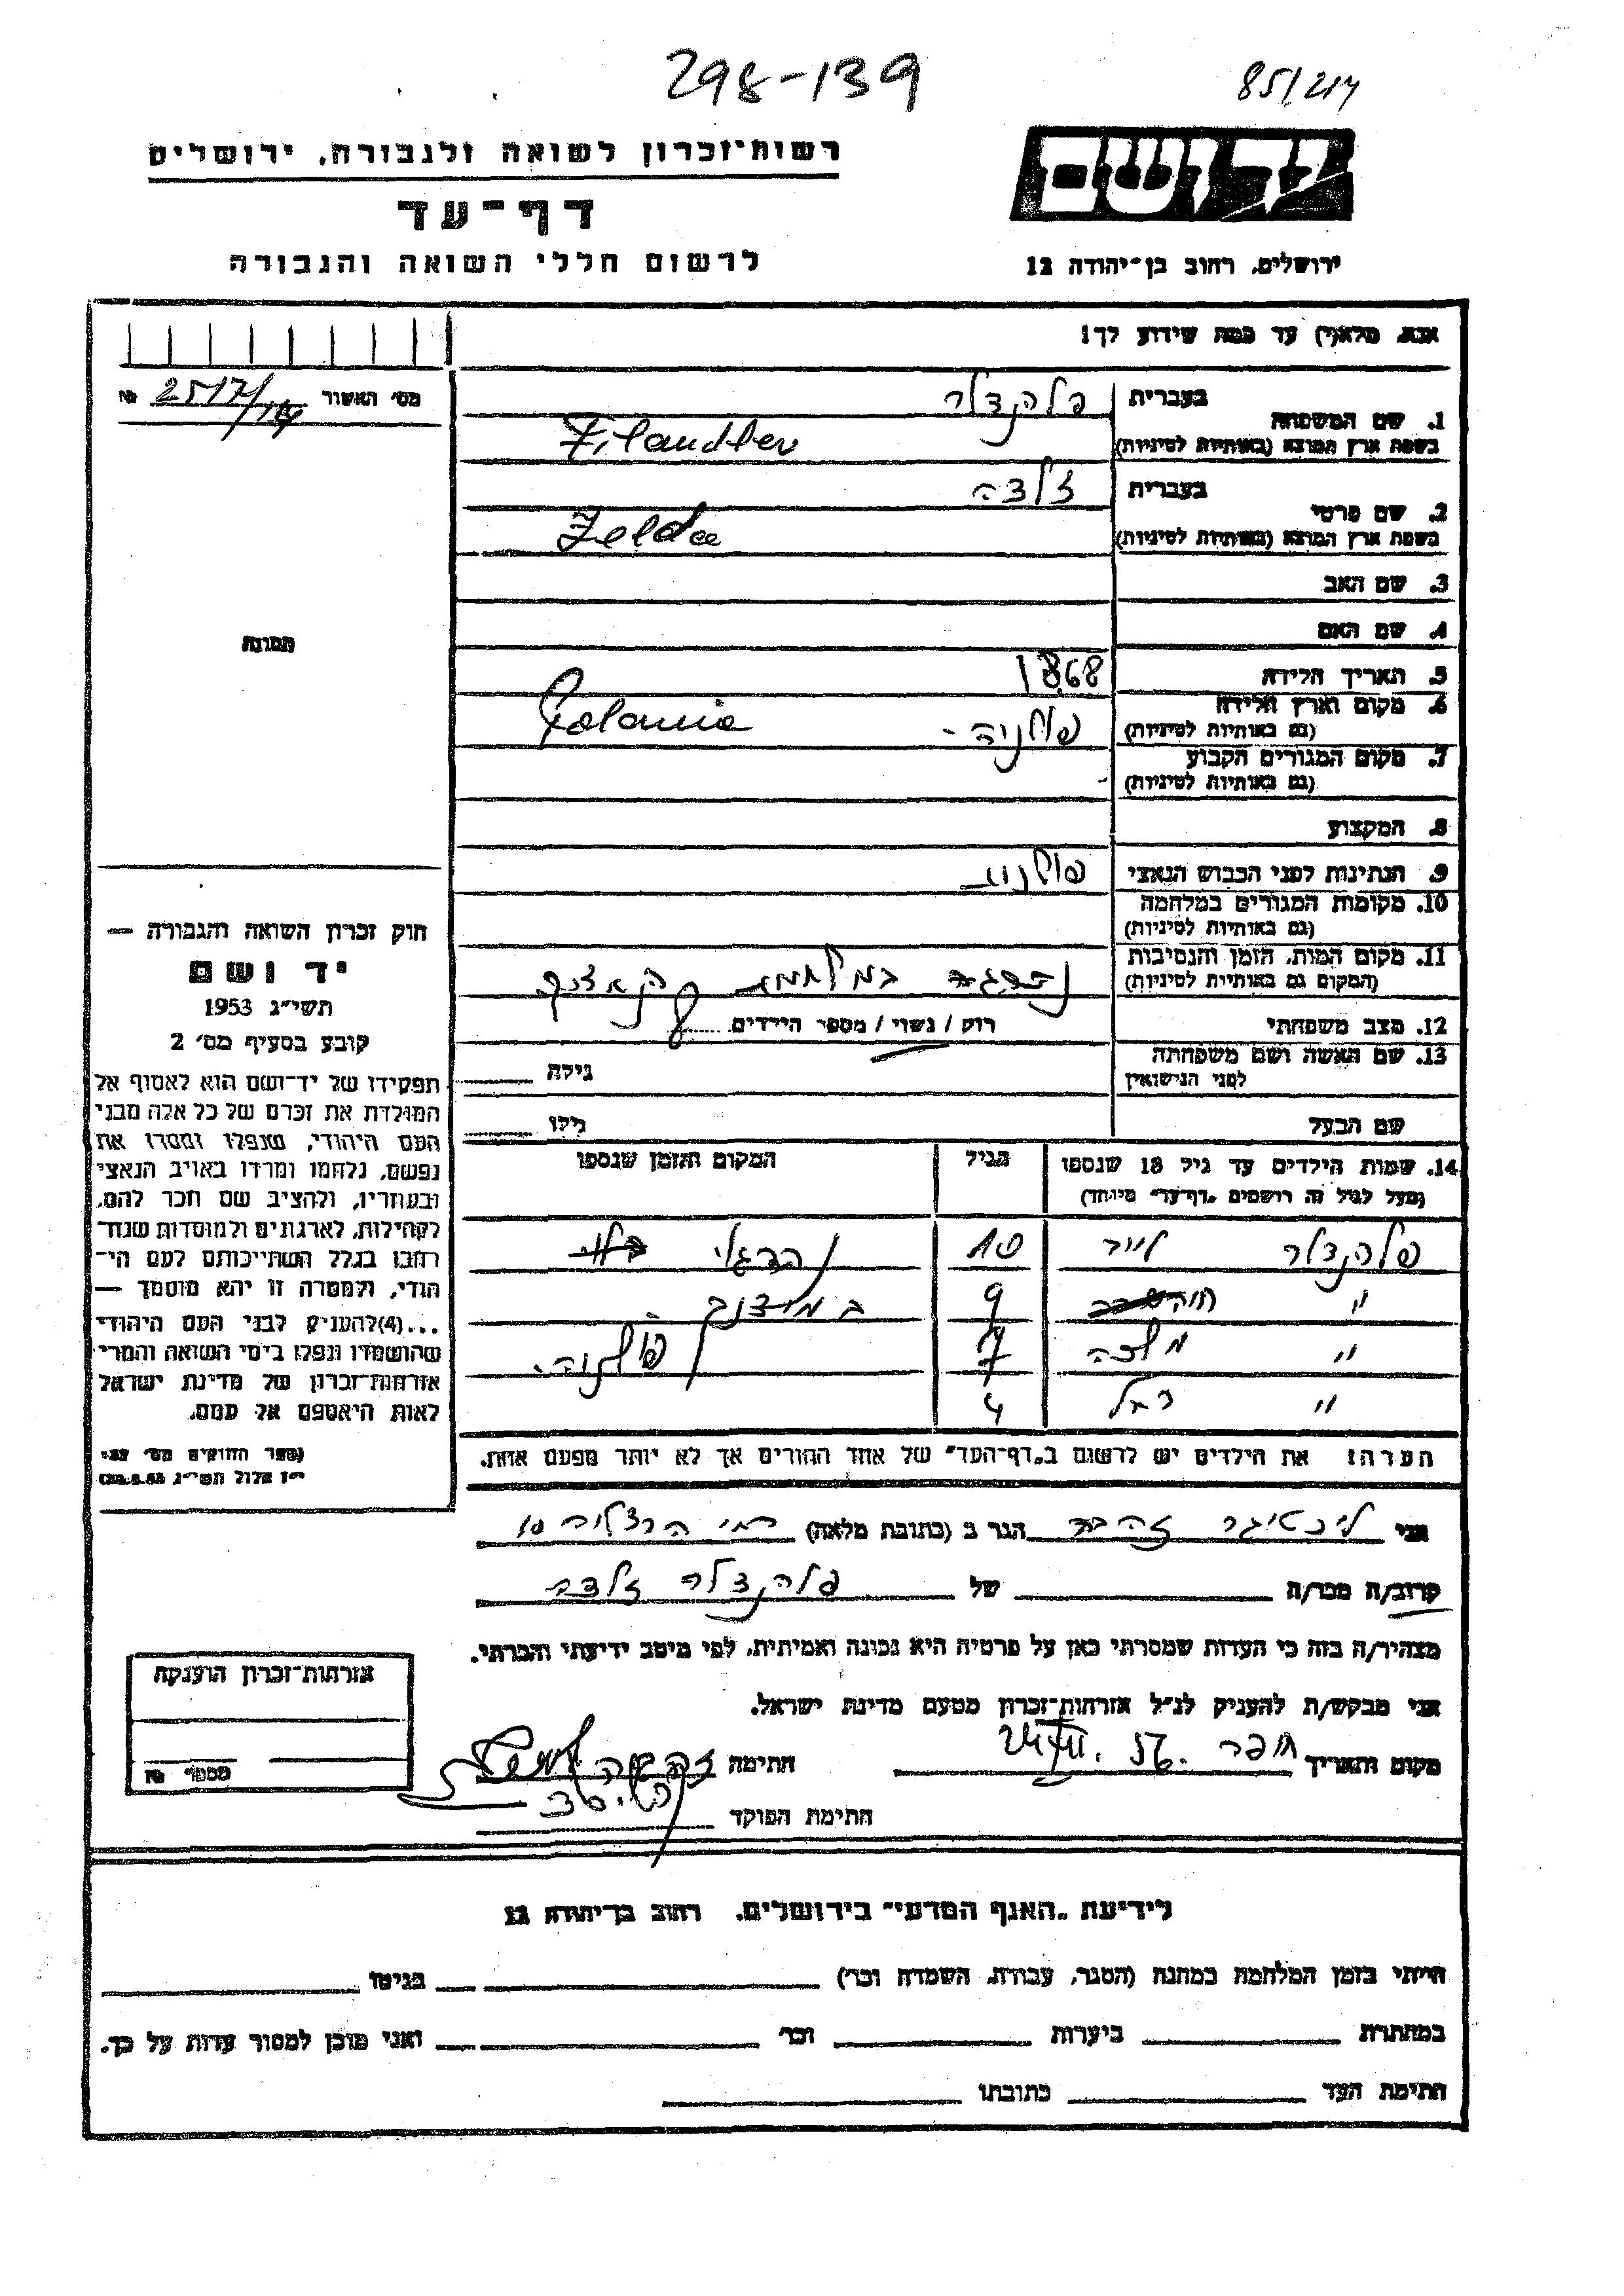 298-139
85/214
רשות־זכרון לשואה ולגבורה, ירושלים
דף־עד
לרשום חללי השואה והגבורה
יד ושם
ירושלים, רחוב בן־יהודה 12
אנא, מלא(י) עד כמה שידוע לך!
מס׳ האשור 2517/14 №
1. שם המשפחה
בעברית
בשפת ארץ המוצא (באותיות לטיניות)
2. שם פרטי
בעברית זלדה
בשפת ארץ המוצא (באותיות לטיניות) Zelda
3. שם האב
4. שם האם
תמונה
5. תאריך הלידה 1868
6. מקום וארץ הלידה
(גם באותיות לטיניות) פולניה - Polania
7. מקום המגורים הקבוע
(גם באותיות לטיניות)
8. המקצוע
9. הנתינות לפני הכבוש הנאצי פולנית
10. מקומות המגורים במלחמה
(גם באותיות לטיניות)
11. מקום המות, הזמן והנסיבות
(המקום גם באותיות לטיניות) במלחמת
12. מצב משפחתי רוק / נשוי / מספר הילדים
13. שם האשה ושם משפחתה
לפני הנישואין גילה
שם הבעל גילו
14. שמות הילדים עד גיל 18 שנספו
(מעל לגיל זה רושמים „דף־עד״ מיוחד)
הגיל
המקום והזמן שנספו
10
״ 9
״ מלכה 7 פולניה.
״ רחל 4
הערה: את הילדים יש לרשום ב„דף־העד״ של אחד ההורים אך לא יותר מפעם אחת.
חוק זכרון השואה והגבורה —
יד ושם
תשי״ג 1953
קובע בסעיף מס׳ 2
תפקידו של יד־ושם הוא לאסוף אל
המולדת את זכרם של כל אלה מבני
העם היהודי, שנפלו ומסרו את
נפשם, נלחמו ומרדו באויב הנאצי
ובעוזריו, ולהציב שם וזכר להם,
לקהילות, לארגונים ולמוסדות שנח־
רבו בגלל השתייכותם לעם הי־
הודי, ולמטרה זו יהא מוסמך —
...(4)להעניק לבני העם היהודי
שהושמדו ונפלו בימי השואה והמרי
אזרחות־זכרון של מדינת ישראל
לאות היאספם אל עמם.
(ספר החוקים מס׳
י״ז אלול תשי״ג
אני זהבה הגר ב (כתובת מלאה) רח׳ הרצליה 10
קרוב/ה מכר/ה של זלדה
מצהיר/ה בזה כי העדות שמסרתי כאן על פרטיה היא נכונה ואמיתית, לפי מיטב ידיעתי והכרתי.
אני מבקש/ת להעניק לנ״ל אזרחות־זכרון מטעם מדינת ישראל.
מקום ותאריך חתימה
חתימת הפוקד
אזרחות־זכרון הוענקה
מספר №
לידיעת „האגף המדעי״ בירושלים, רחוב בן־יהודה 12
הייתי בזמן המלחמה במחנה (הסגר, עבודה, השמדה וכר׳) בגיטו
במחתרת ביערות וכר׳ ואני מוכן למסור עדות על כך.
חתימת העד כתובתו